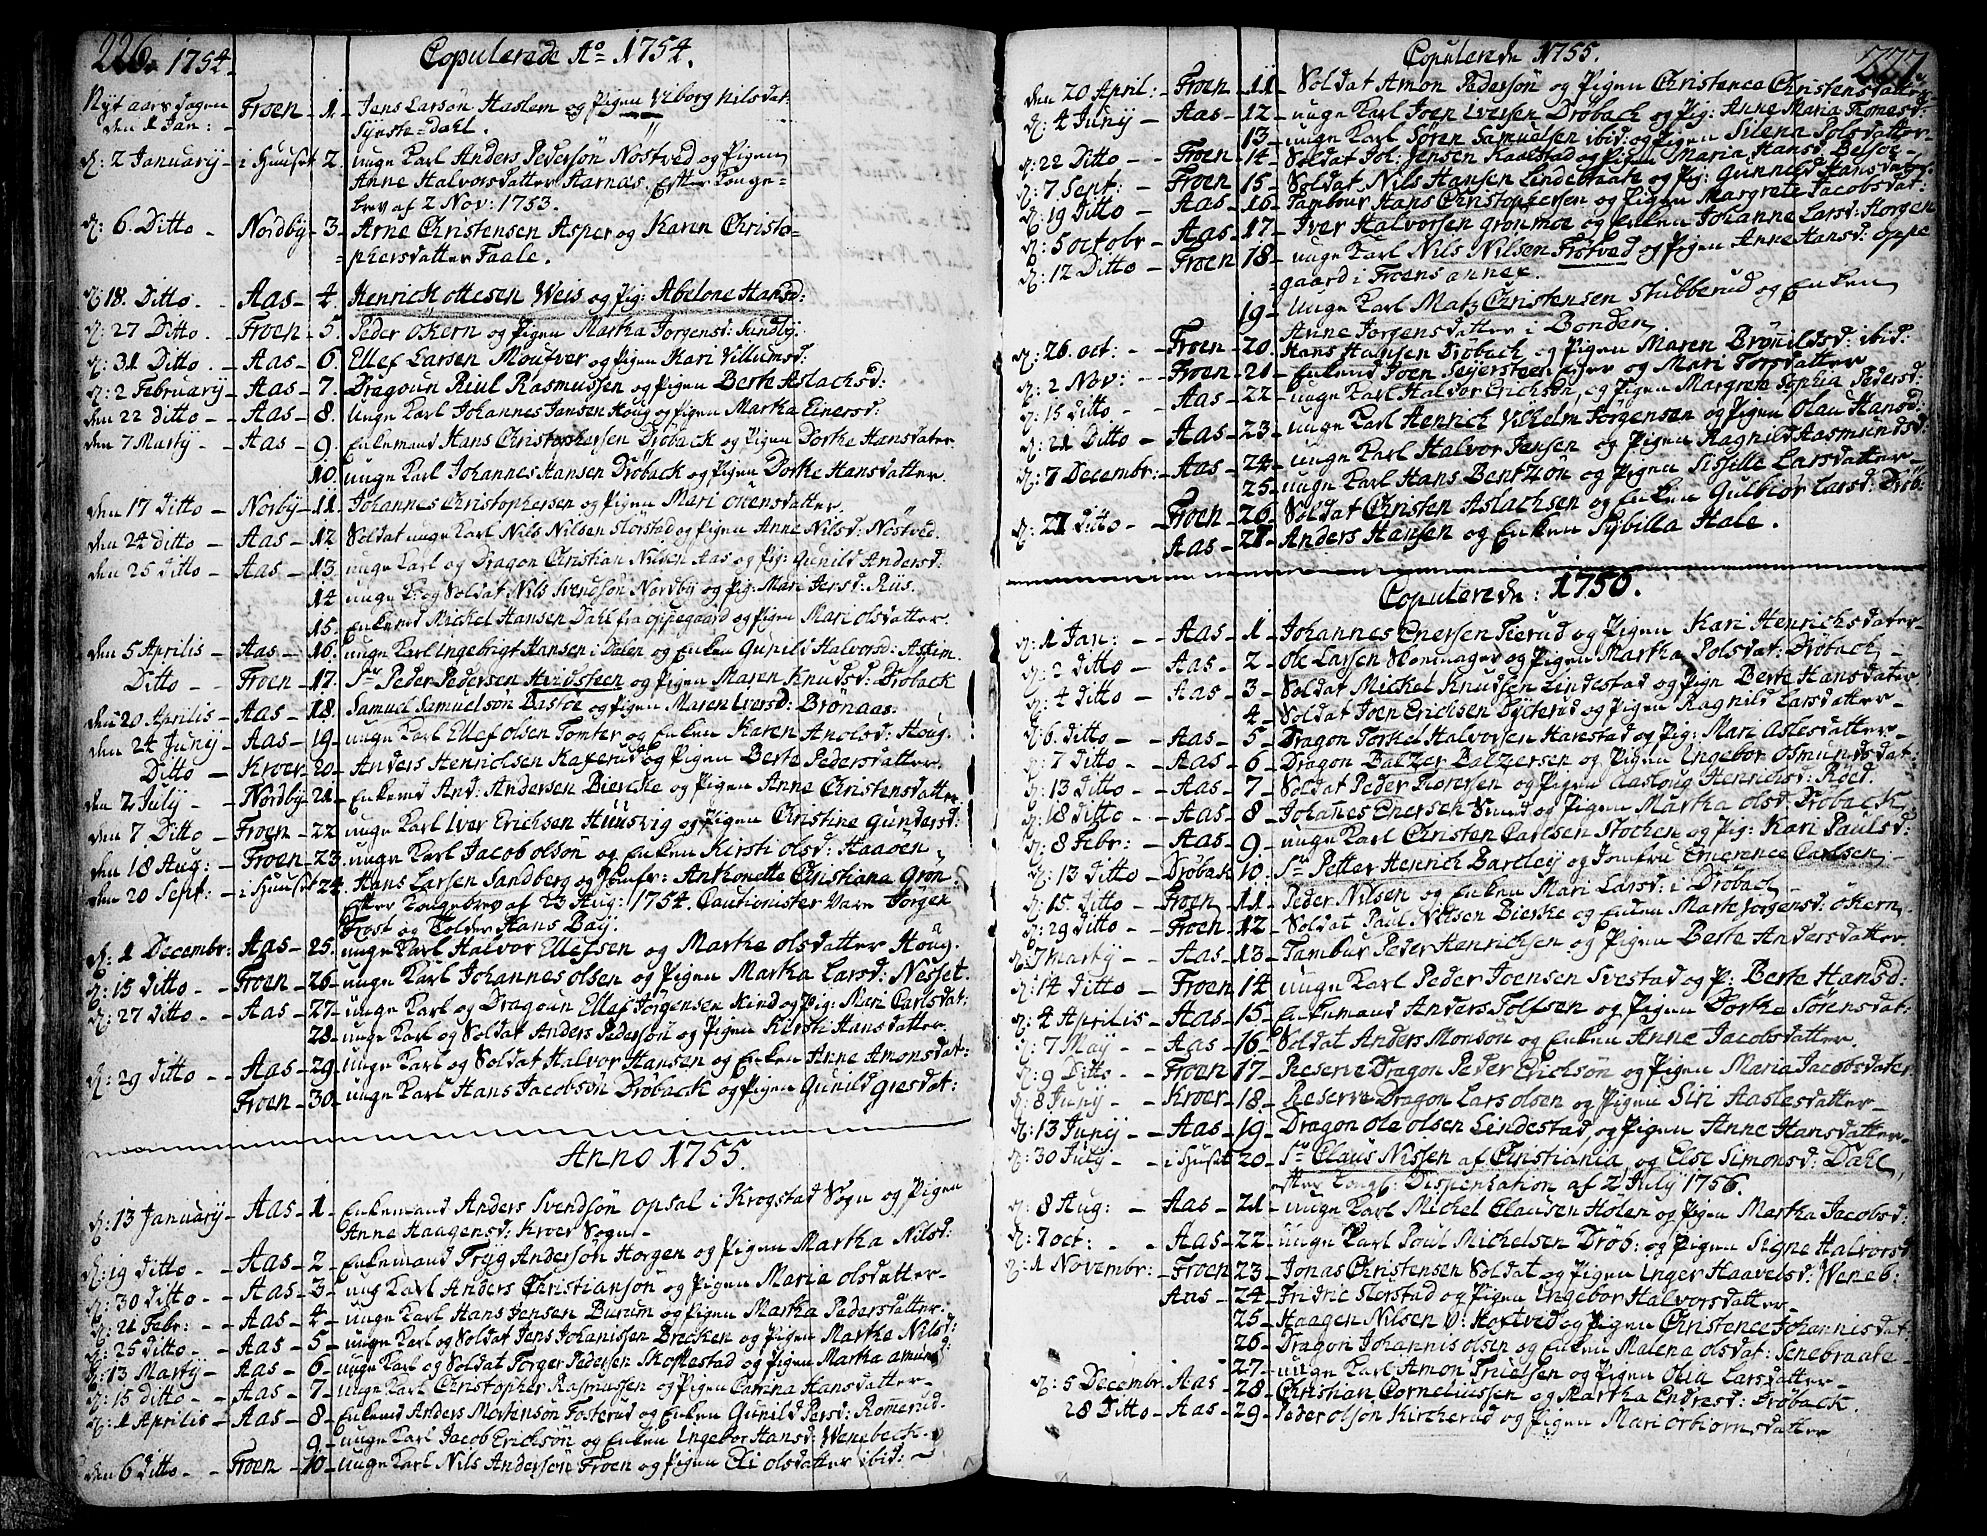 226. 1754.
Copulerede Aº 1754.
Nyt aars dagen Froen 1. Jens Larsøn Haslem og Pigen Viborg Nilsdat:
den 1 Jan: Synste=Dahl.
d: 2 January i Huuset 2. unge Karl Anders Pedersøn Nøstved og Pigen
Anne Halvorsdatter Aarnas. Efter Konge=
brev af 2 Nov: 1753.
d: 6. Ditto Nordby 3. Arne Christensen Asper og Karen Christo=
=phersdatter Faale.
d: 18. Ditto. Aas 4. Henrick Ottesen Weis og Pig: Abelone Hansd:
d: 27 Ditto. Froen 5. Peder Økern og Pigen Martha Jorgensd: Sundby
d: 31 Ditto. Aas 6. Ellef Larsen Moufver og Pigen Kari Villumsd:
d: 2 February Aas 7. Dragoun Riul Rasmussen og Pigen Berte Aslachsd:
den 22 ditto Aas 8. Unge Karl Johannes Jansen Houg og Pigen Martha Einersd:
den 7 Marty Aas 9. Enkemand Hans Christophersen Drøback og Pigen Dorthe Hansdater
10. unge Karl Johannes Hansen Drøback og Pigen Dorthe Hansdatter.
den 17 Ditto Norby 11. Johannes Christophersen og Pigen Mari Ottensdatter.
den 24 Ditto Aas 12. Soldat unge Karl Nils Nilsen Storstad og Pigen Anne Nilsd: Nøstved.
den 25 Ditto Aas 13. unge Karl og Dragon Christian Nilsen Aas og Pig: Gunild Andersd:
14 unge K: og Soldat Nils Svendsøn Nordby og Pig: Mari Jensd: Riis.
15. Enkemd Mickel Hansen Dahl fra Oppegaard og Pigen Mari Olsdatter.
den 5 Aprilis Aas 16. unge Karl Ingebrigt Hansen i Dalen og Enken Gunild Halvorsd: Astim.
Ditto Froen 17. Sr Peder Pedersen Hvidsteen og Pigen Maren Knudsd: Drøback
den 20 Aprilis Aas 18. Samuel Samuelsøn Bastøe og Pigen Maren Iversd: Brønaas:
den 24 Juny Aas 19. unge Karl Ellef Olsen Tomter og Enken Karen Arolsd: Houg.
Ditto Kroer 20. Anders Henrichsen Kaxerud og Pigen Berte Pedersdatter.
den 2 July Nordby 21. Enkemd And: Andersen Biercke og Pigen Anne Christensdatter
den 7. Ditto Froen 22. unge Karl Iver Erichsen Huusvig og Pigen Christine Gundersd:
den 18 Aug: Froen 23. unge Karl Jacob Olsøn og Enken Kirsti Olsd: Haaøen
den 20 Sept: i Huuset 24. Hans Larsen Sandberg og Jomfr: Anthonette Christiana Grøn=
Efter Kongebrev af 23 Aug: 1754. Cautionister Vare Jørgen
Frost og Tolder Hans Bay.
d: 1 Decembr: Aas 25. unge Karl Halvor Ellefsen og Marthe Olsdatter Houg.
d: 15 Ditto Froen 26. unge Karl Johannes Olsen og Pigen Martha Larsd: Nesset.
d: 27 Ditto Aas 27. unge Karl og Dragoun Ellef Jørgensen Kind og Pig: Mari Carlsdat:
28. unge Karl og Soldat Anders Pedersøn og Pigen Kirsti Hansdatter.
d: 29 Ditto Aas 29. unge Karl og Soldat Halvor Hansen og Enken Anne Amonsdat:
Froen 30. unge Karl Hans Jacobsøn Drøback og Pigen Gunild Gresdat:
Anno 1755.
d: 13 January Aas 1 Enkemand Anders Svendsøn Opsal i Krogstad Sogn og Pigen
Anne Haagensd: Kroer Sogn.
d: 19 Ditto Aas 2 Enkemand Tryg Andersøn Horgen og Pigen Martha Nilsd:
d: 30 Ditto Aas 3 ung Karl Anders Christiansøn og Pigen Maria Olsdatter
d: 21 Febr: Aas 4 unge Karl Hans Jensen Burum og Pigen Martha Pedersdatter:
d: 25 Ditto Aas 5 unge Karl og Soldat Jens Johanissen Brecken og Pigen Marthe Nilsd:
d: 13 Marty Aas 6 unge Karl og Soldat Torger Pedersen Skoftestad og Pigen Martha Amunds:
d: 15 Ditto Aas 7 unge Karl Christopher Rasmussen og Pigen Carina Hansdatter
d: 1 Aprilis Aas 8 Enkemd Anders Mortensøn Fosterud og Enken Gunild Persd: Romerud.
9 unge Karl Jacob Erichsøn og Enken Ingebor Hansd: Wenebeck.
den 6 Ditto Froen 10 unge Karl Nils Andersøn Froen og Pigen Eli Olsdatter ibid:
Copulerede 1755. 227.
den 20 April: Froen 11 Soldat Amon Pedersøn og Pigen Christence Christensdatter
d: 4 Juny Aas 12 unge Karl Joen Iversen Drøback og Pig: Anne Maria Tomasd:
13 unge Karl Søren Samuelsen ibid: og Pigen Silena Polsdatter
d: 22 Ditto Froen 14 Soldat Jol: Jensen Kaalstad og Pigen Maria Hansd: Belsøe
d: 7 Sept: Froen 15 Soldat Nils Hansen Lindebraate og Pig: Gunnild Hansdatter
d: 19 Ditto Aas 16 Tambour Hans Christophersen og Pigen Margrete Jacobsdat:
d: 5 Octobr Aas 17 Iver Halvorsen Grønmoe og Enken Johanne Larsd: Horgen
d: 12 Ditto Froen 18 unge Karl Nils Nilsen Frøtved og Pigen Anne Hansd: Oppe
=gaard i Froens annex.
19 Unge Karl Matz Christensen Stubberud og Enken
Anne Jorgensdatter i Bonden.
d: 26. Oct: Froen 20 Hans Hansen Drøback og Pigen Maren Brønildsd: ibid:
d: 2 Nov: Froen 21 Enkemd Joen Seyersteen Eyer og Mari Torsdatter
d: 15 Ditto Aas 22 unge Karl Halvor Erichsøn, og Pigen Margrete Sophia Pedersd:
d: 21 Ditto Aas 23 unge Karl Henrich Vilhelm Jørgensen og Pigen Olau Hansd:
d: 7 Decembr: Aas 24 unge Karl Halvor Jensen og Pigen Ragnild Aasmundsd:
25 unge Karl Hans Bentzøn og Pigen Sisille Larsdatter
d: 27 Ditto Froen 26 Soldat Christen Aslachsen og Enken Gulbiør Larsd: Drøb:
Aas 27 Anders Hansen og Enken Sybilla Hale.
Copulerede: 1756.
d: 1 Jan: Aas 1 Johannes Enersen Tierud og Pigen Kari Henrichsdater
d: 2 Ditto Aas 2 Ole Larsen Skomager og Pigen Martha Polsdat: Drøback
d: 4 Ditto Aas 3 Soldat Mickel Knudsen Lindestad og Pign Berte Hansdatter
4 Soldat Joen Erichsen Sycherud og Pigen Ragnild Larsdatter
d: 6 Ditto Aas 5 Dragon Torkel Halvorsen Harestad og Pig: Mari Aslesdatter
d: 7 Ditto Aas 6 Dragon Balzer Balzersen og Pigen Ingebor Osmundsdat:
d: 13 Ditto Aas 7 Soldat Peder Thoresen og Pigen Aaslaug Henrichsd: Røed.
d: 18 Ditto Aas 8 Johannes Enersen Smed og Pigen Martha Olsd: Drøback.
d: 8 Febr: Aas 9 unge Karl Christen Carlsen Stochen og Pig: Kari Paulsd:
d: 13 Ditto Drøback 10. Sr Petter Henrich Bartley og Jomfru Emerence Carlsen
d: 15. Ditto Froen 11 Peder Nilsen og Enken Mari Larsd: i Drøback
d: 29 Ditto Froen 12 Soldat Paul Nilsen Bierke og Enken Marth: Jorgensd: Økern.
d: 7 Marty Aas 13 Tambur Peder Henrichsen og Pigen Berte Andersdatter
d: 14 Ditto Froen 14 unge Karl Peder Joensen Svestad og P: Berte Hansd:
d: 4 Aprilis Aas 15 Enkemand Anders Tolfsen og Pigen Dorthe Sørensdat:
d: 7 May Aas 16 Soldat Anders Monsøn og Enken Anne Jacobsdatter.
d: 9 Ditto Froen 17 Reserve Dragon Peder Ericksøn og Pigen Maria Jacobsdater
d: 8 Juny Kroer 18 Reserve Dragon Lars Olsen og Pigen Siri Aaslesdatter
d: 13 Juny Aas 19 Dragon Ole Olsen Lindestad, og Pigen Anne Hansdatter
d: 30 July i Huset 20 Sr Claus Nissen af Christiania, og Else Simonsd: Dahl,
efter Kongl: Dispensation af 2 July 1756.
d: 8 Aug: Aas 21 unge Karl Michel Clausen Holen og Pigen Martha Jacobsd:
d: 7 Oct: Aas 22 unge Karl Poul Michelsen Drøb: og Pigen Signe Halvorsd:
d: 1 Novembr: Froen 23 Jonas Christensen Soldat og Pigen Inger Haavelsd: Weneb:
Aas 24 Fridric Storstad og Pigen Ingebor Halvorsdatter
25 Haagen Nilsen V: Hoxtved og Pigen Christence Johannisdat:
26 Dragon Johannis Olsen og Enken Malena Olsdat: Senebraate
27 unge Karl Amon Truelsen og Pigen Olia Larsdatter
d: 5 Decembr Aas 28 Christian Corneliussen og Martha Endresd: Drøback.
28 Ditto Aas 29 Peder Olsøn Kircherud og Pigen Mari Orbiornsdatter